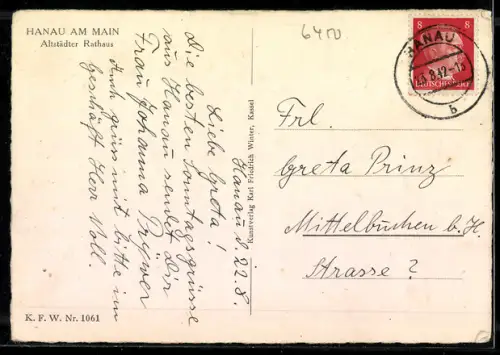 HANAU AM MAIN
Altstädter Rathaus
6450
8 8
HANAU
8.42-15
DEUTSCHES REICH
b
Hanau d. 22.8.
Liebe Greta!
Die besten Sonntagsgrüsse
aus Hanau sendet Dir
Frau Johanna
Auch grüss mit bitte im
Geschäft Herr Voll.
Kunstverlag Karl Friedrich Winter, Kassel
Frl.
Greta Prinz
Mittelbuchen b. H.
Strasse ?
K. F. W. Nr. 1061